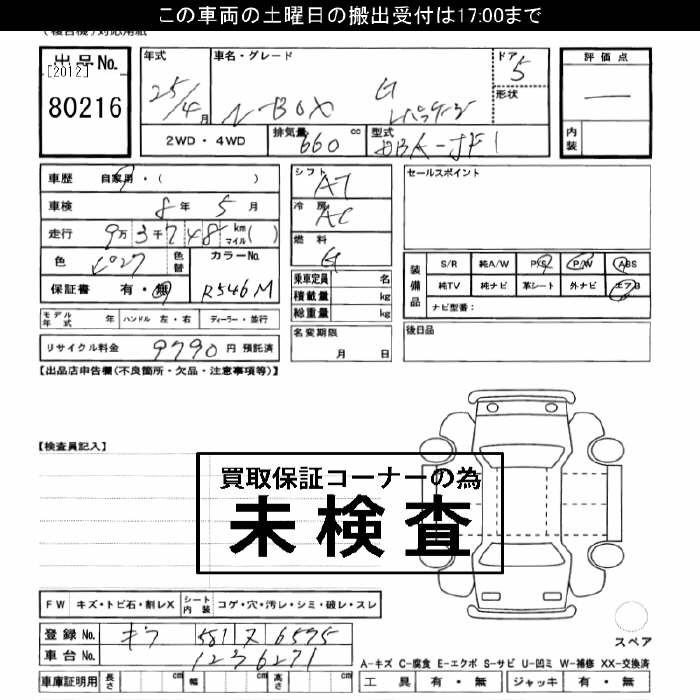 この車両の土曜日の搬出受付は17:00まで
出品No.
[2012]
80216
年式
25/4月
車名・グレード
N-BOX
G
Lパッケージ
ドア
5
形状
2WD・4WD
排気量
660 cc
型式
DBA-JF1
評価点
内装
車歴 自家用・( )
車検 8年 5月
走行 9万3千748 km マイル( )
色
色替
カラーNo.
R546M
保証書 有・無
シフト
AT
冷房
AC
燃料
G
乗車定員 名
積載量 kg
総重量 kg
セールスポイント
装備品
S/R 純A/W P/S P/W ABS
純TV 純ナビ 革シート 外ナビ エアB
ナビ型番:
モデル年式 年 ハンドル 左・右 ディーラー・並行
名変期限
月 日
後日品
リサイクル料金 9790 円 預託済
【出品店申告欄(不良箇所・欠品・注意事項等)】
【検査員記入】
買取保証コーナーの為
未検査
FW キズ・トビ石・割レX シート内装 コゲ・穴・汚レ・シミ・破レ・スレ
登録No. ギフ 581 ヌ 6595
車台No. 1236271
スペア
A-キズ C-腐食 E-エクボ S-サビ U-凹ミ W-補修 XX-交換済
車庫証明用 長さ cm 幅 cm 高さ cm
工具 有・無 ジャッキ 有・無